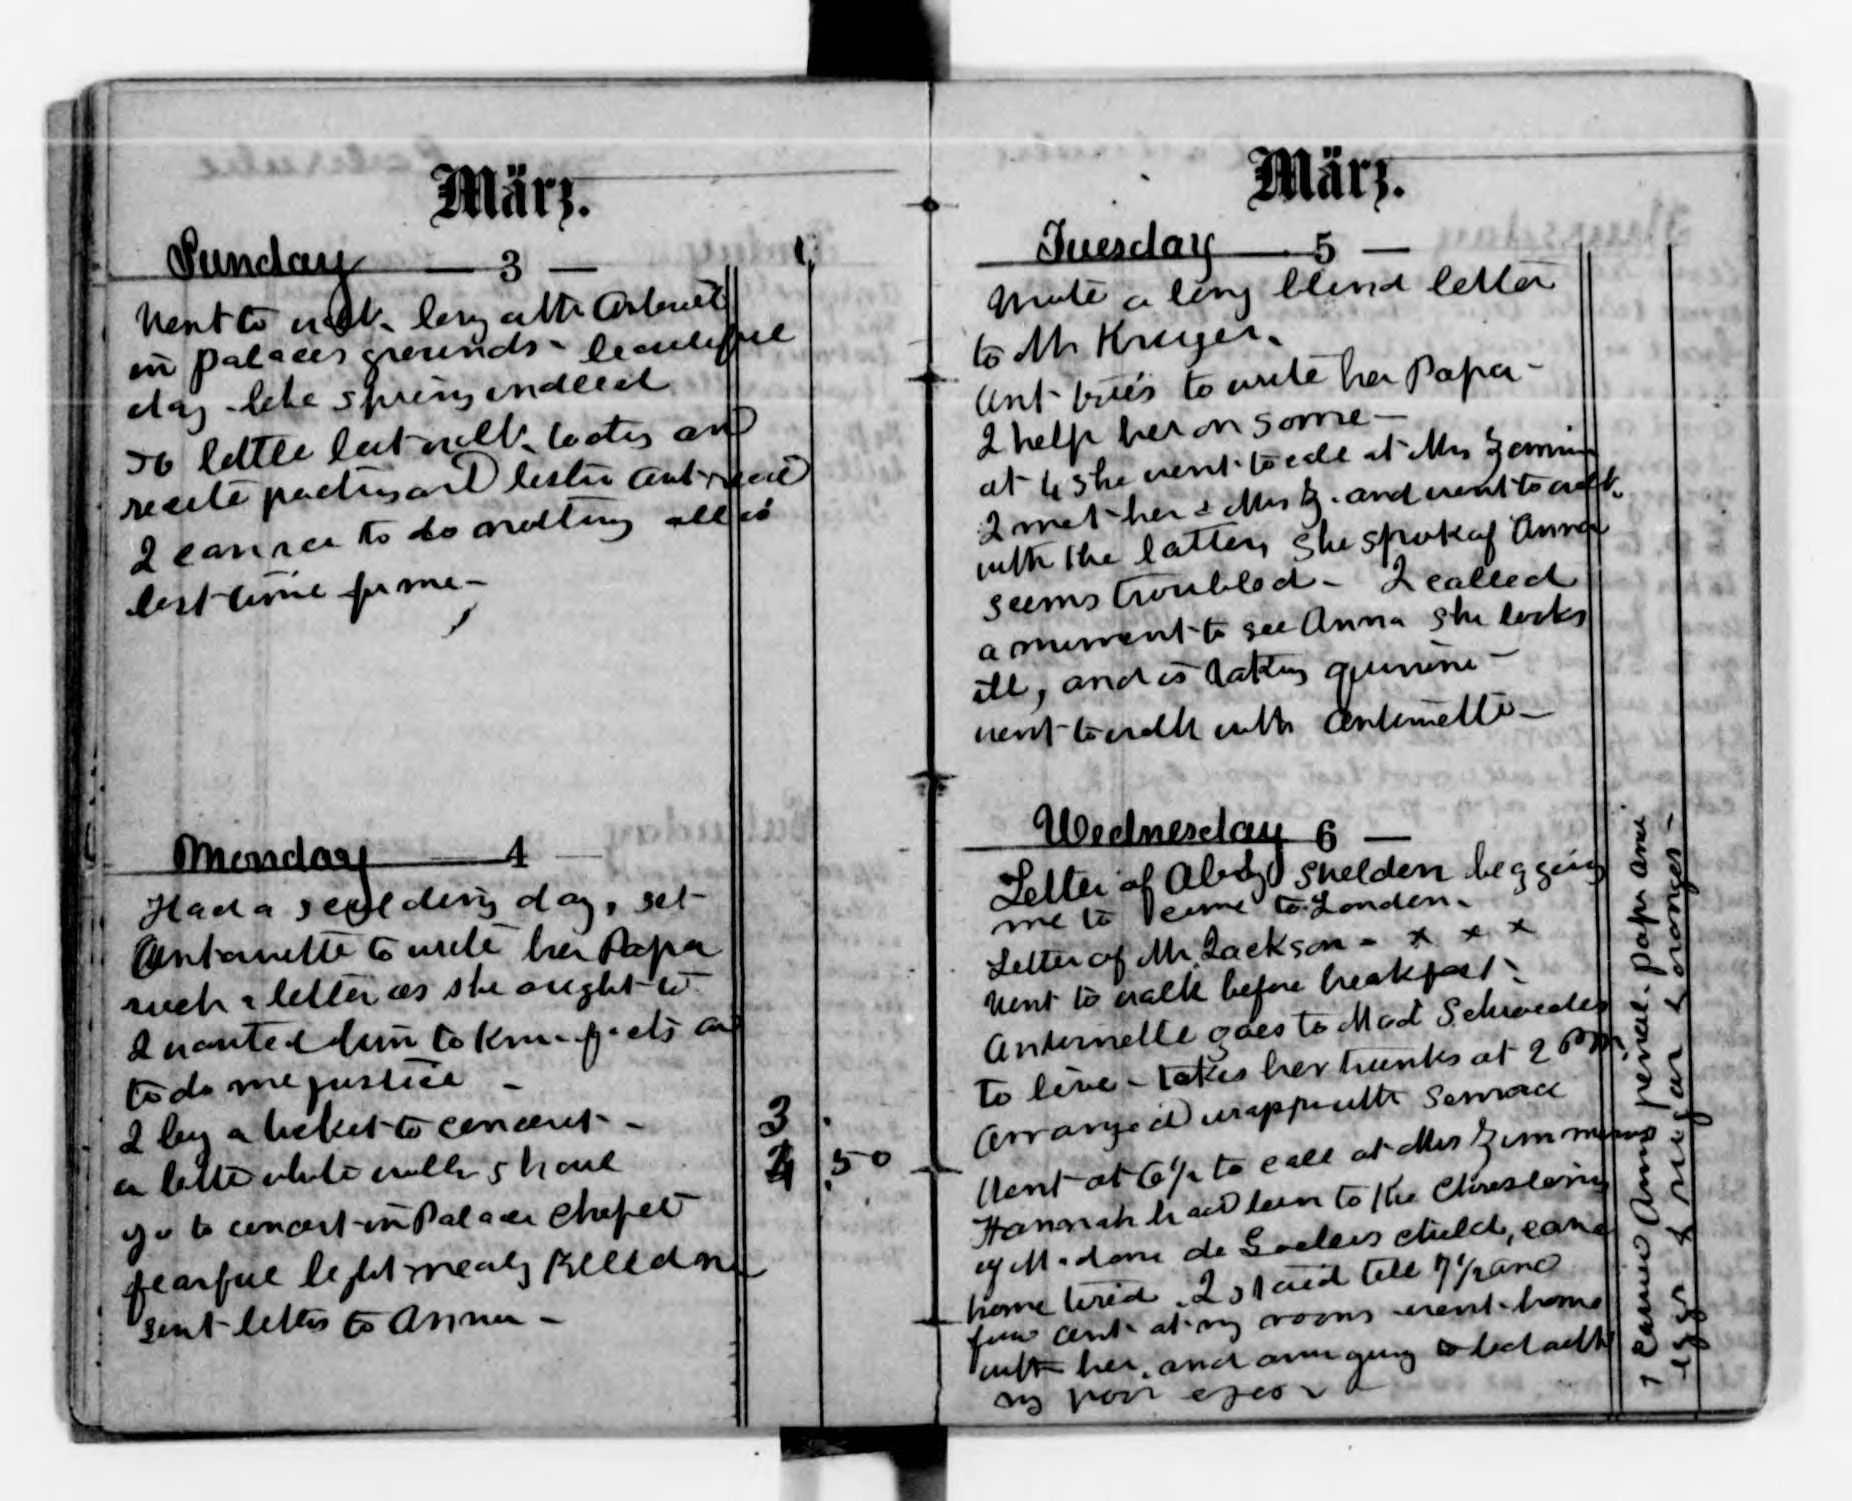 März.
Sunday 3 —
Went to walk long with Antoinette
in palaces grounds - beautiful
day - like spring indeed
so little but walk, tootes and
recite poetry and listen Ant read
I can see to do nothing all is
lost time for me -
Monday 4
Had a scolding day, set
Antoinette to write her Papa
such a letter as she ought to
I wanted him to know facts and
to do me justice -
I buy a ticket to concert - 3.
a little white wooller shawl 4.50
go to concert in Palace Chapel
fearful light nearly killed me
sent letter to Anna -
März.
Tuesday 5 —
Wrote a long blind letter
to Mr Kruger.
Ant- tries to write her Papa -
I help her on some -
at 4 she went to call at Mrs Zimmer
I met her & Mrs Z. and went to walk
with the latter, she spoke of Anna
seems troubled - I called
a moment to see Anna she looks
ill, and is taking quinine -
went to walk with Antoinette -
Wednesday 6 —
Letter of Abby Sheldon begging
me to come to London.
Letter of Mr. Jackson - x x x
Went to walk before breakfast -
Antoinette goes to Mad Schroeder
to live - takes her trunks at 2 PM.
Arranged wrapp with
Went at 6½ to call at Mrs Zimmermans
Hannah had been to the Christening
of Madam de child, came
home tired. I staid till 7½ and
found Ant- at my rooms went home
with her, and am going to bed with
my poor eyes -
1 pencil. paper and
eggs & sugar & oranges -